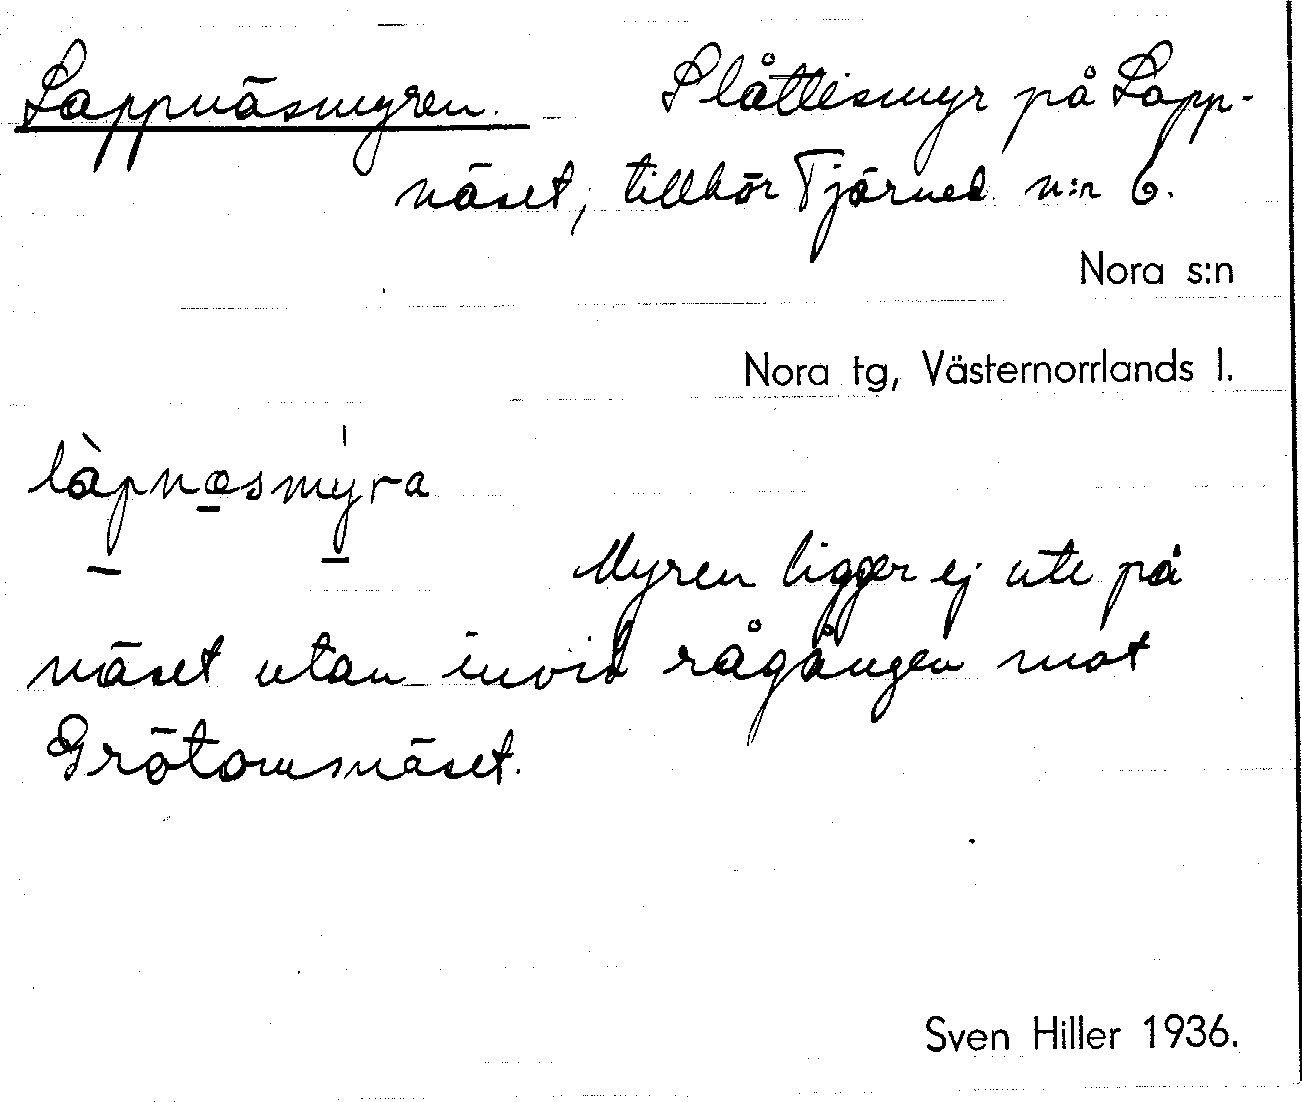 Lappnäsmyren. Slåttesmyr på Lapp-
näset, tillhör Tjärned n:r 6.
Nora s:n
Nora tg, Västernorrlands l.
làpnæsmýra
Myren ligger ej ute på
näset utan invid rågången mot
Grötomsnäset.
Sven Hiller 1936.